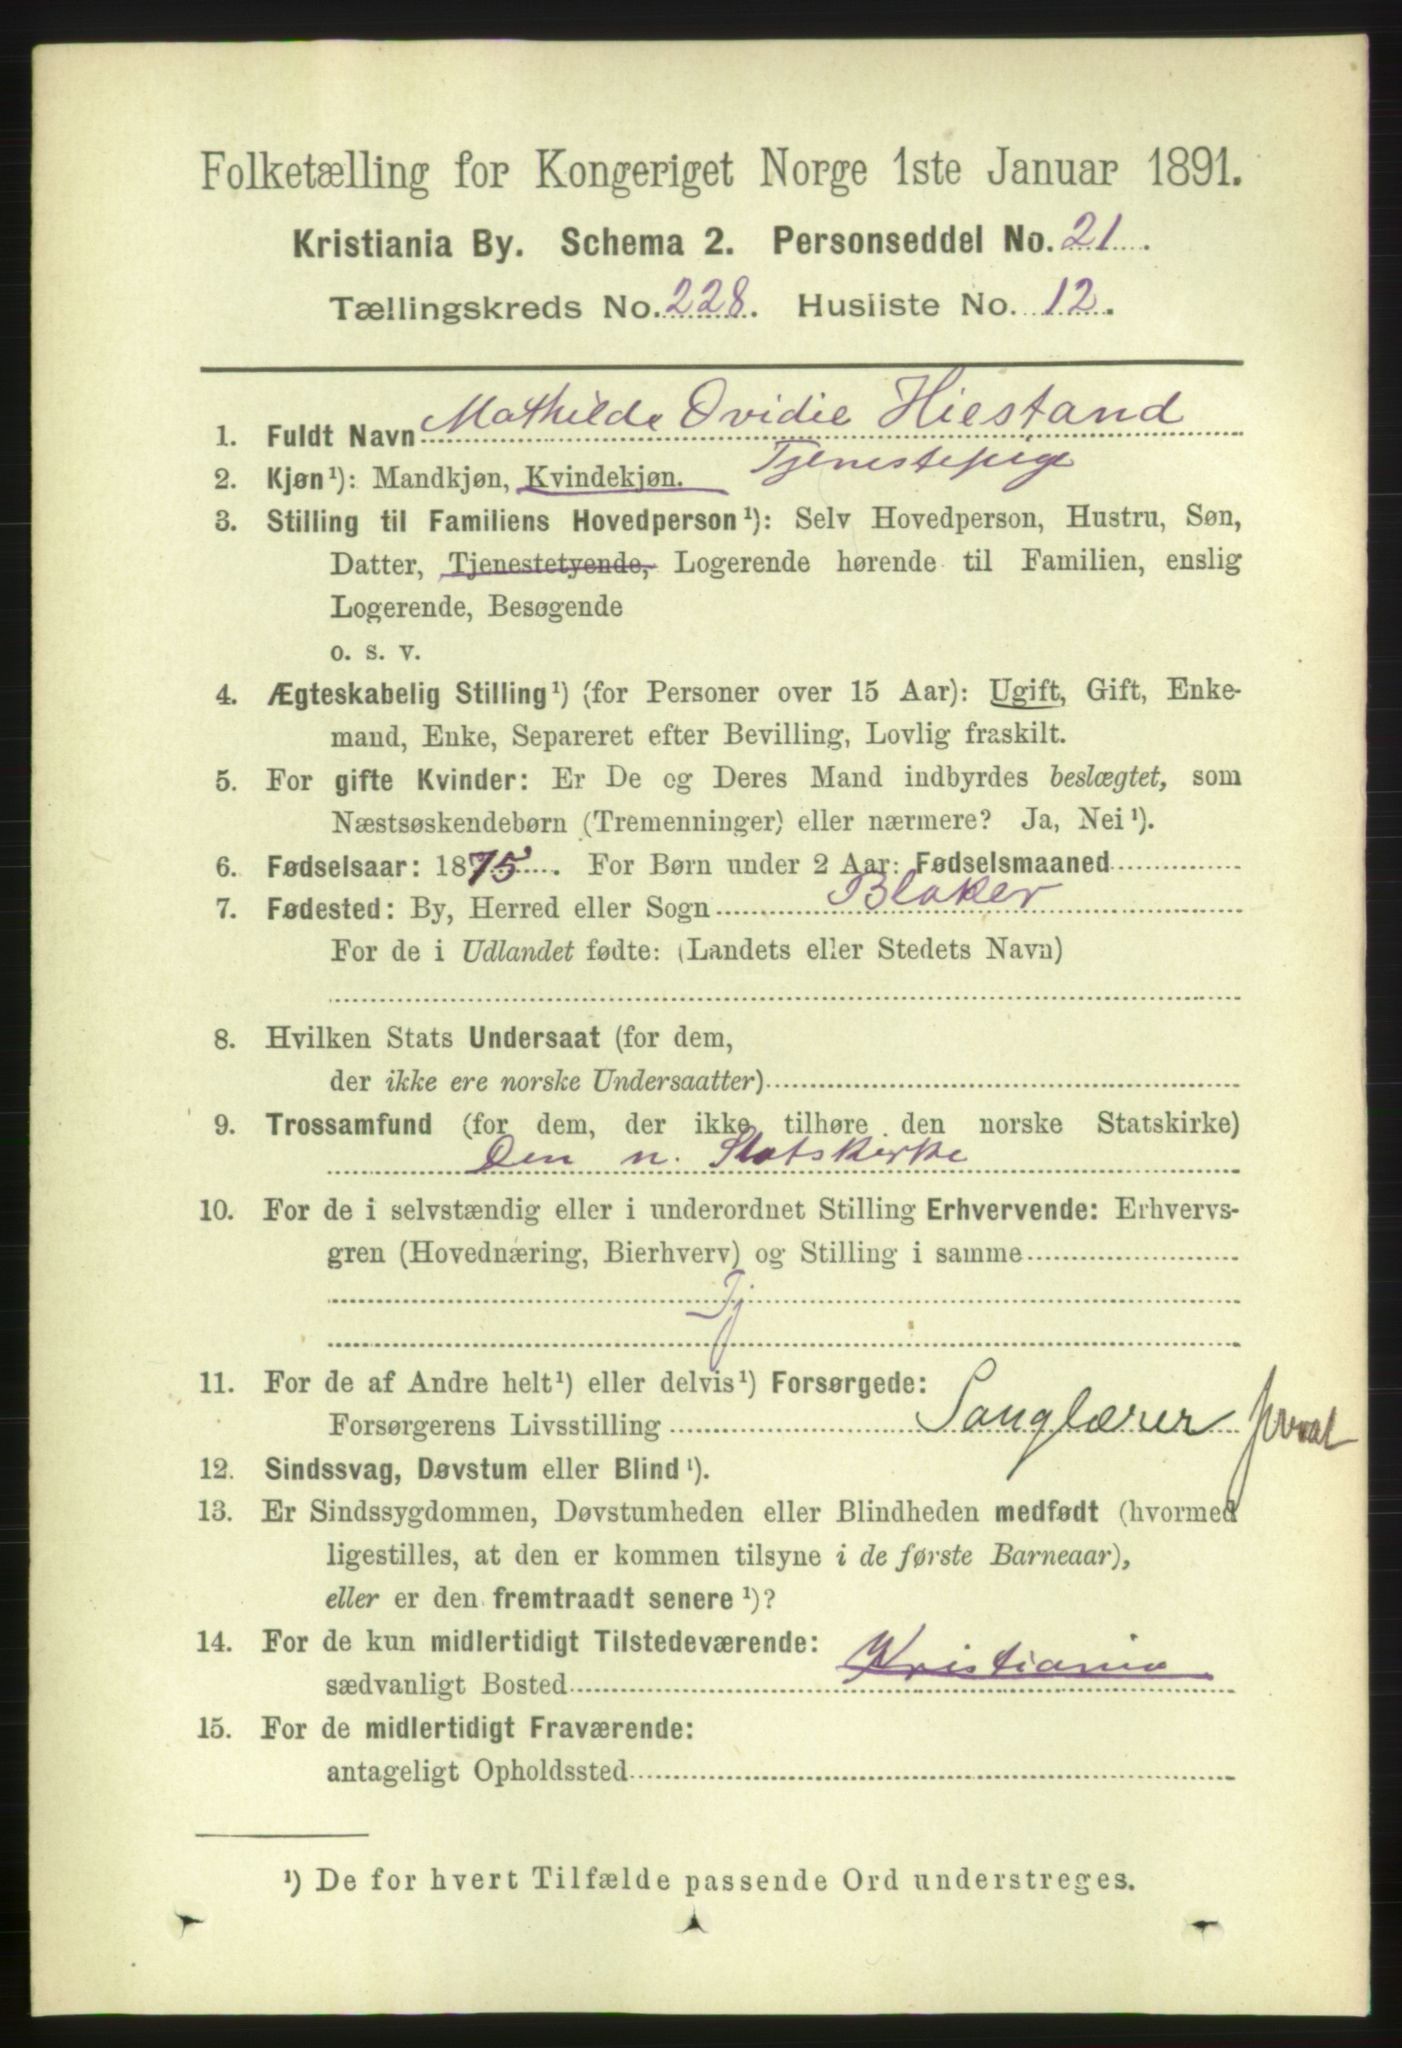 Folketælling for Kongeriget Norge 1ste Januar 1891.
Kristiania By. Schema 2. Personseddel No. 21.
Tællingskreds No. 228. Husliste No. 12.
1. Fuldt Navn Mathilde Ovidie Hiestand
2. Kjøn¹): Mandkjøn, Kvindekjøn. Tjenestepige
3. Stilling til Familiens Hovedperson¹): Selv Hovedperson, Hustru, Søn,
Datter, Tjenestetyende, Logerende hørende til Familien, enslig
Logerende, Besøgende
o. s. v.
4. Ægteskabelig Stilling¹) (for Personer over 15 Aar): Ugift, Gift, Enke-
mand, Enke, Separeret efter Bevilling, Lovlig fraskilt.
5. For gifte Kvinder: Er De og Deres Mand indbyrdes beslægtet, som
Næstsøskendebørn (Tremenninger) eller nærmere? Ja, Nei¹).
6. Fødselsaar: 1875. For Børn under 2 Aar: Fødselsmaaned
7. Fødested: By, Herred eller Sogn Blaker
For de i Udlandet fødte: (Landets eller Stedets Navn)
8. Hvilken Stats Undersaat (for dem,
der ikke ere norske Undersaatter)
9. Trossamfund (for dem, der ikke tilhøre den norske Statskirke)
Den n. Statskirke
10. For de i selvstændig eller i underordnet Stilling Erhvervende: Erhvervs-
gren (Hovednæring, Bierhverv) og Stilling i samme
Tj
11. For de af Andre helt¹) eller delvis¹) Forsørgede:
Forsørgerens Livsstilling Sanglærer
12. Sindssvag, Døvstum eller Blind¹).
13. Er Sindssygdommen, Døvstumheden eller Blindheden medfødt (hvormed
ligestilles, at den er kommen tilsyne i de første Barneaar),
eller er den fremtraadt senere¹)?
14. For de kun midlertidigt Tilstedeværende:
sædvanligt Bosted Kristiania
15. For de midlertidigt Fraværende:
antageligt Opholdssted
¹) De for hvert Tilfælde passende Ord understreges.